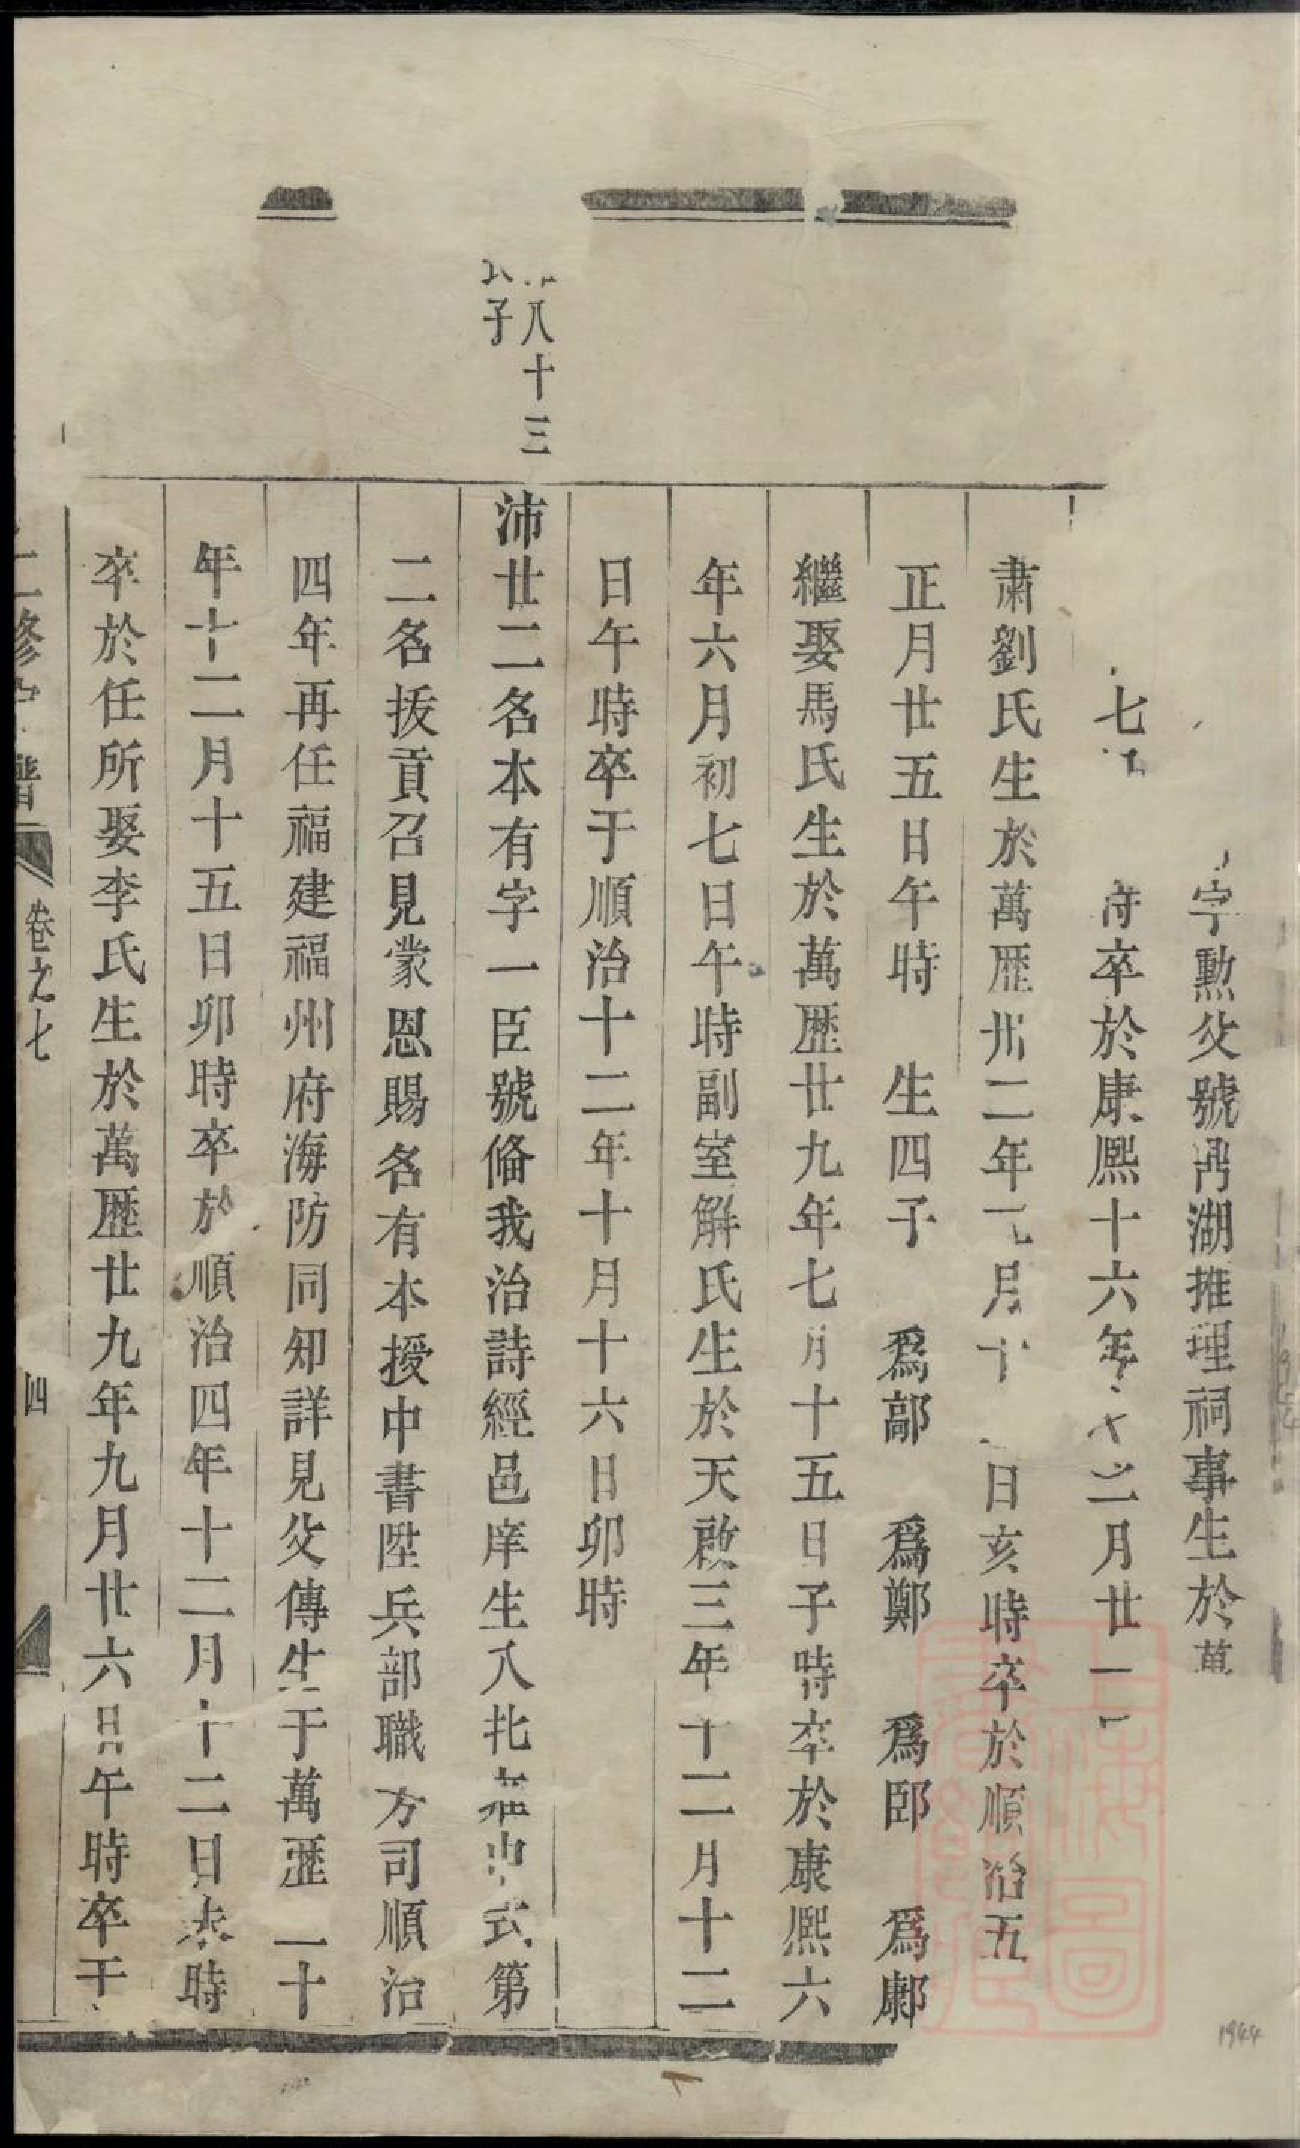 字勲公號鬲湖推理祠事生於萬
七 時卒於康熙十六年 二月廿一
肅劉氏生於萬歷卅二年 月十 日亥時卒於順治五
正月廿五日午時 生四子 爲鄗 爲鄭 爲郘 爲鄺
繼娶馬氏生於萬歷廿九年七月十五日子時卒於康熙六
年六月初七日午時副室解氏生於天啟三年十二月十二
日午時卒于順治十二年十月十六日卯時
八十三
子
沛廿二名本有字一臣號俻我治詩經邑庠生入北 中式第
二名拔貢召見蒙恩賜名有本授中書陞兵部職方司順治
四年再任福建福州府海防同知詳見公傳生于萬歷二十
年十二月十五日卯時卒於順治四年十二月十二日 時
卒於任所娶李氏生於萬歷廿九年九月廿六日午時卒于
二修 譜
卷之七
四
上海圖書館藏
1944